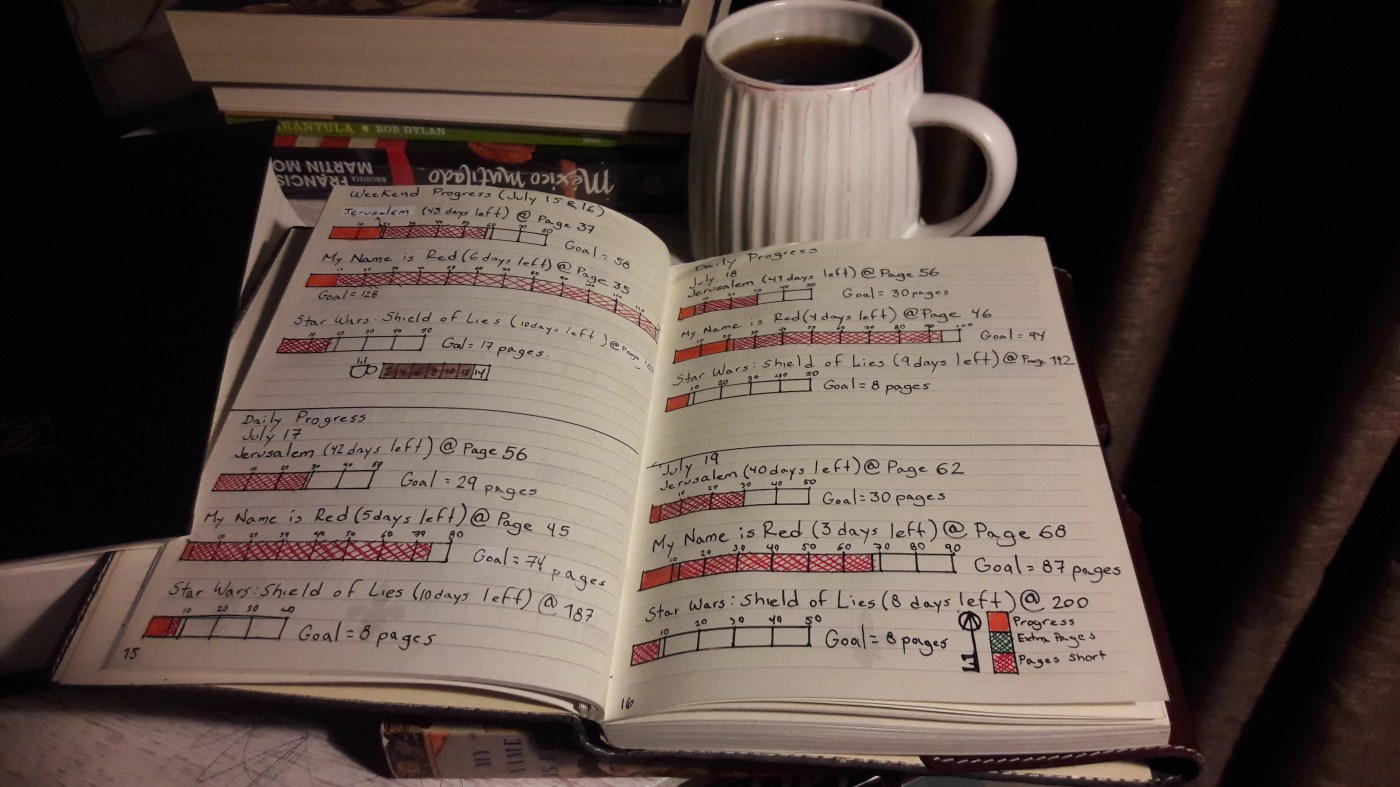 TARANTULA • BOB DYLAN
BIBLIOTECA
FRANCIS
MARTÍN MO
México Mutilado
Weekend Progress (July 15 & 16)
Jerusalem (43 days left) @ Page 37
Goal = 58
My Name is Red (6 days left) @ Page 35
Goal = 128
Star Wars: Shield of Lies (10 days left) @ Page
10 20 30 40 50
Goal = 17 pages.
2 4 6 8 10 12 14
Daily Progress
July 17
Jerusalem (42 days left) @ Page 56
10 20 30 40 50
Goal = 29 pages
My Name is Red (5 days left) @ Page 45
10 20 30 40 50 60 70 80
Goal = 74 pages
Star Wars: Shield of Lies (10 days left) @ 187
10 20 30 40
Goal = 8 pages
15
Daily Progress
July 18
Jerusalem (41 days left) @ Page 56
10 20 30 40 50
Goal = 30 pages
My Name is Red (4 days left) @ Page 46
10 20 30 40 50 60 70 80 90 100
Goal = 94
Star Wars: Shield of Lies (9 days left) @ Page 192
10 20 30 40 50
Goal = 8 pages
July 19
Jerusalem (40 days left) @ Page 62
10 20 30 40 50
Goal = 30 pages
My Name is Red (3 days left) @ Page 68
10 20 30 40 50 60 70 80 90
Goal = 87 pages
Star Wars: Shield of Lies (8 days left) @ 200
10 20 30 40 50
Goal = 8 pages
Progress
Extra Pages
Pages Short
16
MY
NAME